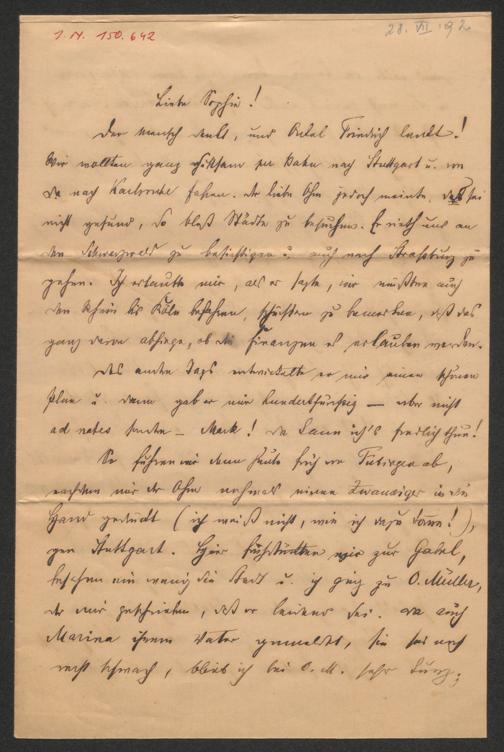 J. N. 150.642
28. VII. 92
Liebe Sophie!
Der Mensch denkt, und Onkel Friedrich lenkt!
Wir wollten ganz per Bahn nach Stuttgart u. von
da nach Karlsruhe fahren. Der liebe Ohm jedoch meinte, das sei
nicht gesund, so bloß Städte zu besuchen. Er rieth uns an
den Schwarzwald zu besichtigen u. auch nach Straßburg zu
gehen. Ich erlaubte mir, als er sagte, wir müßten auch
den Rhein bis Köln befahren, schüchtern zu bemerken, daß das
ganz davon abhinge, ob die Finanzen es erlauben werden.
Des andern Tags entwickelte er mir einen schönen
Plan u. dann gab er mir hundertfünfzig — aber nicht
ad notes sondern — Mark! Da kann ich's freilich thun!
So fuhren wir denn heute früh von Tübingen ab,
nachdem mir der Ohm nochmals einen Zwanziger in die
Hand gedrückt (ich weiß nicht, wie ich dazu komme!),
gen Stuttgart. Hier frühstückten wir zur Gabel,
besahen ein wenig die Stadt u. ich ging zu O. Müller,
der mir geschrieben, daß er leidend sei. Da auch
Marina ihrem Vater gemeldet, sie sei noch
recht schwach, blieb ich bei O. M. sehr kurz;